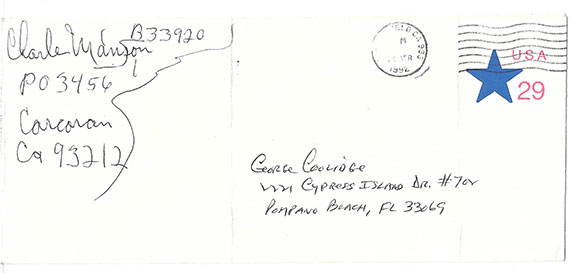 Charle Manson B33920
PO 3456
Corcoran
Ca 93212
M
1992
USA
29
George Coolidge
2221 Cypress Island Dr. #702
Pompano Beach, FL 33069